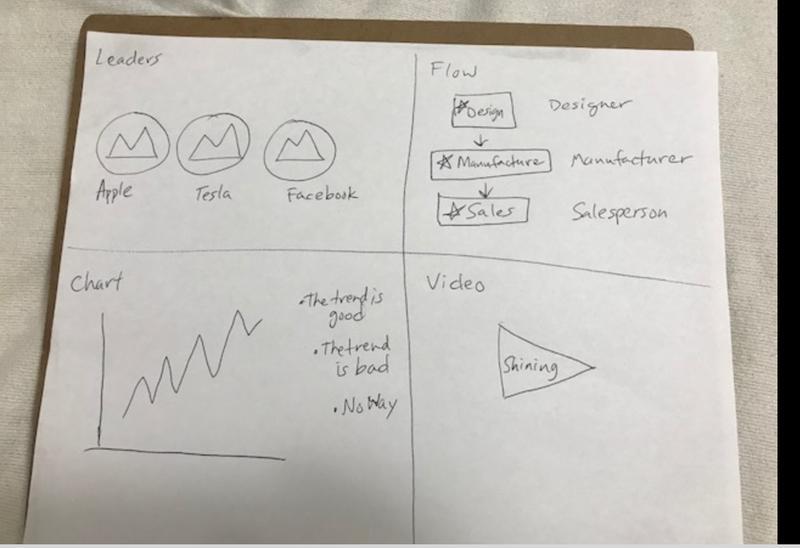 Leaders
Apple
Tesla
Facebook
Flow
Design
Designer
Manufacture
Manufacturer
Sales
Salesperson
Chart
•The trend is
good
•The trend
is bad
•No Way
Video
Shining